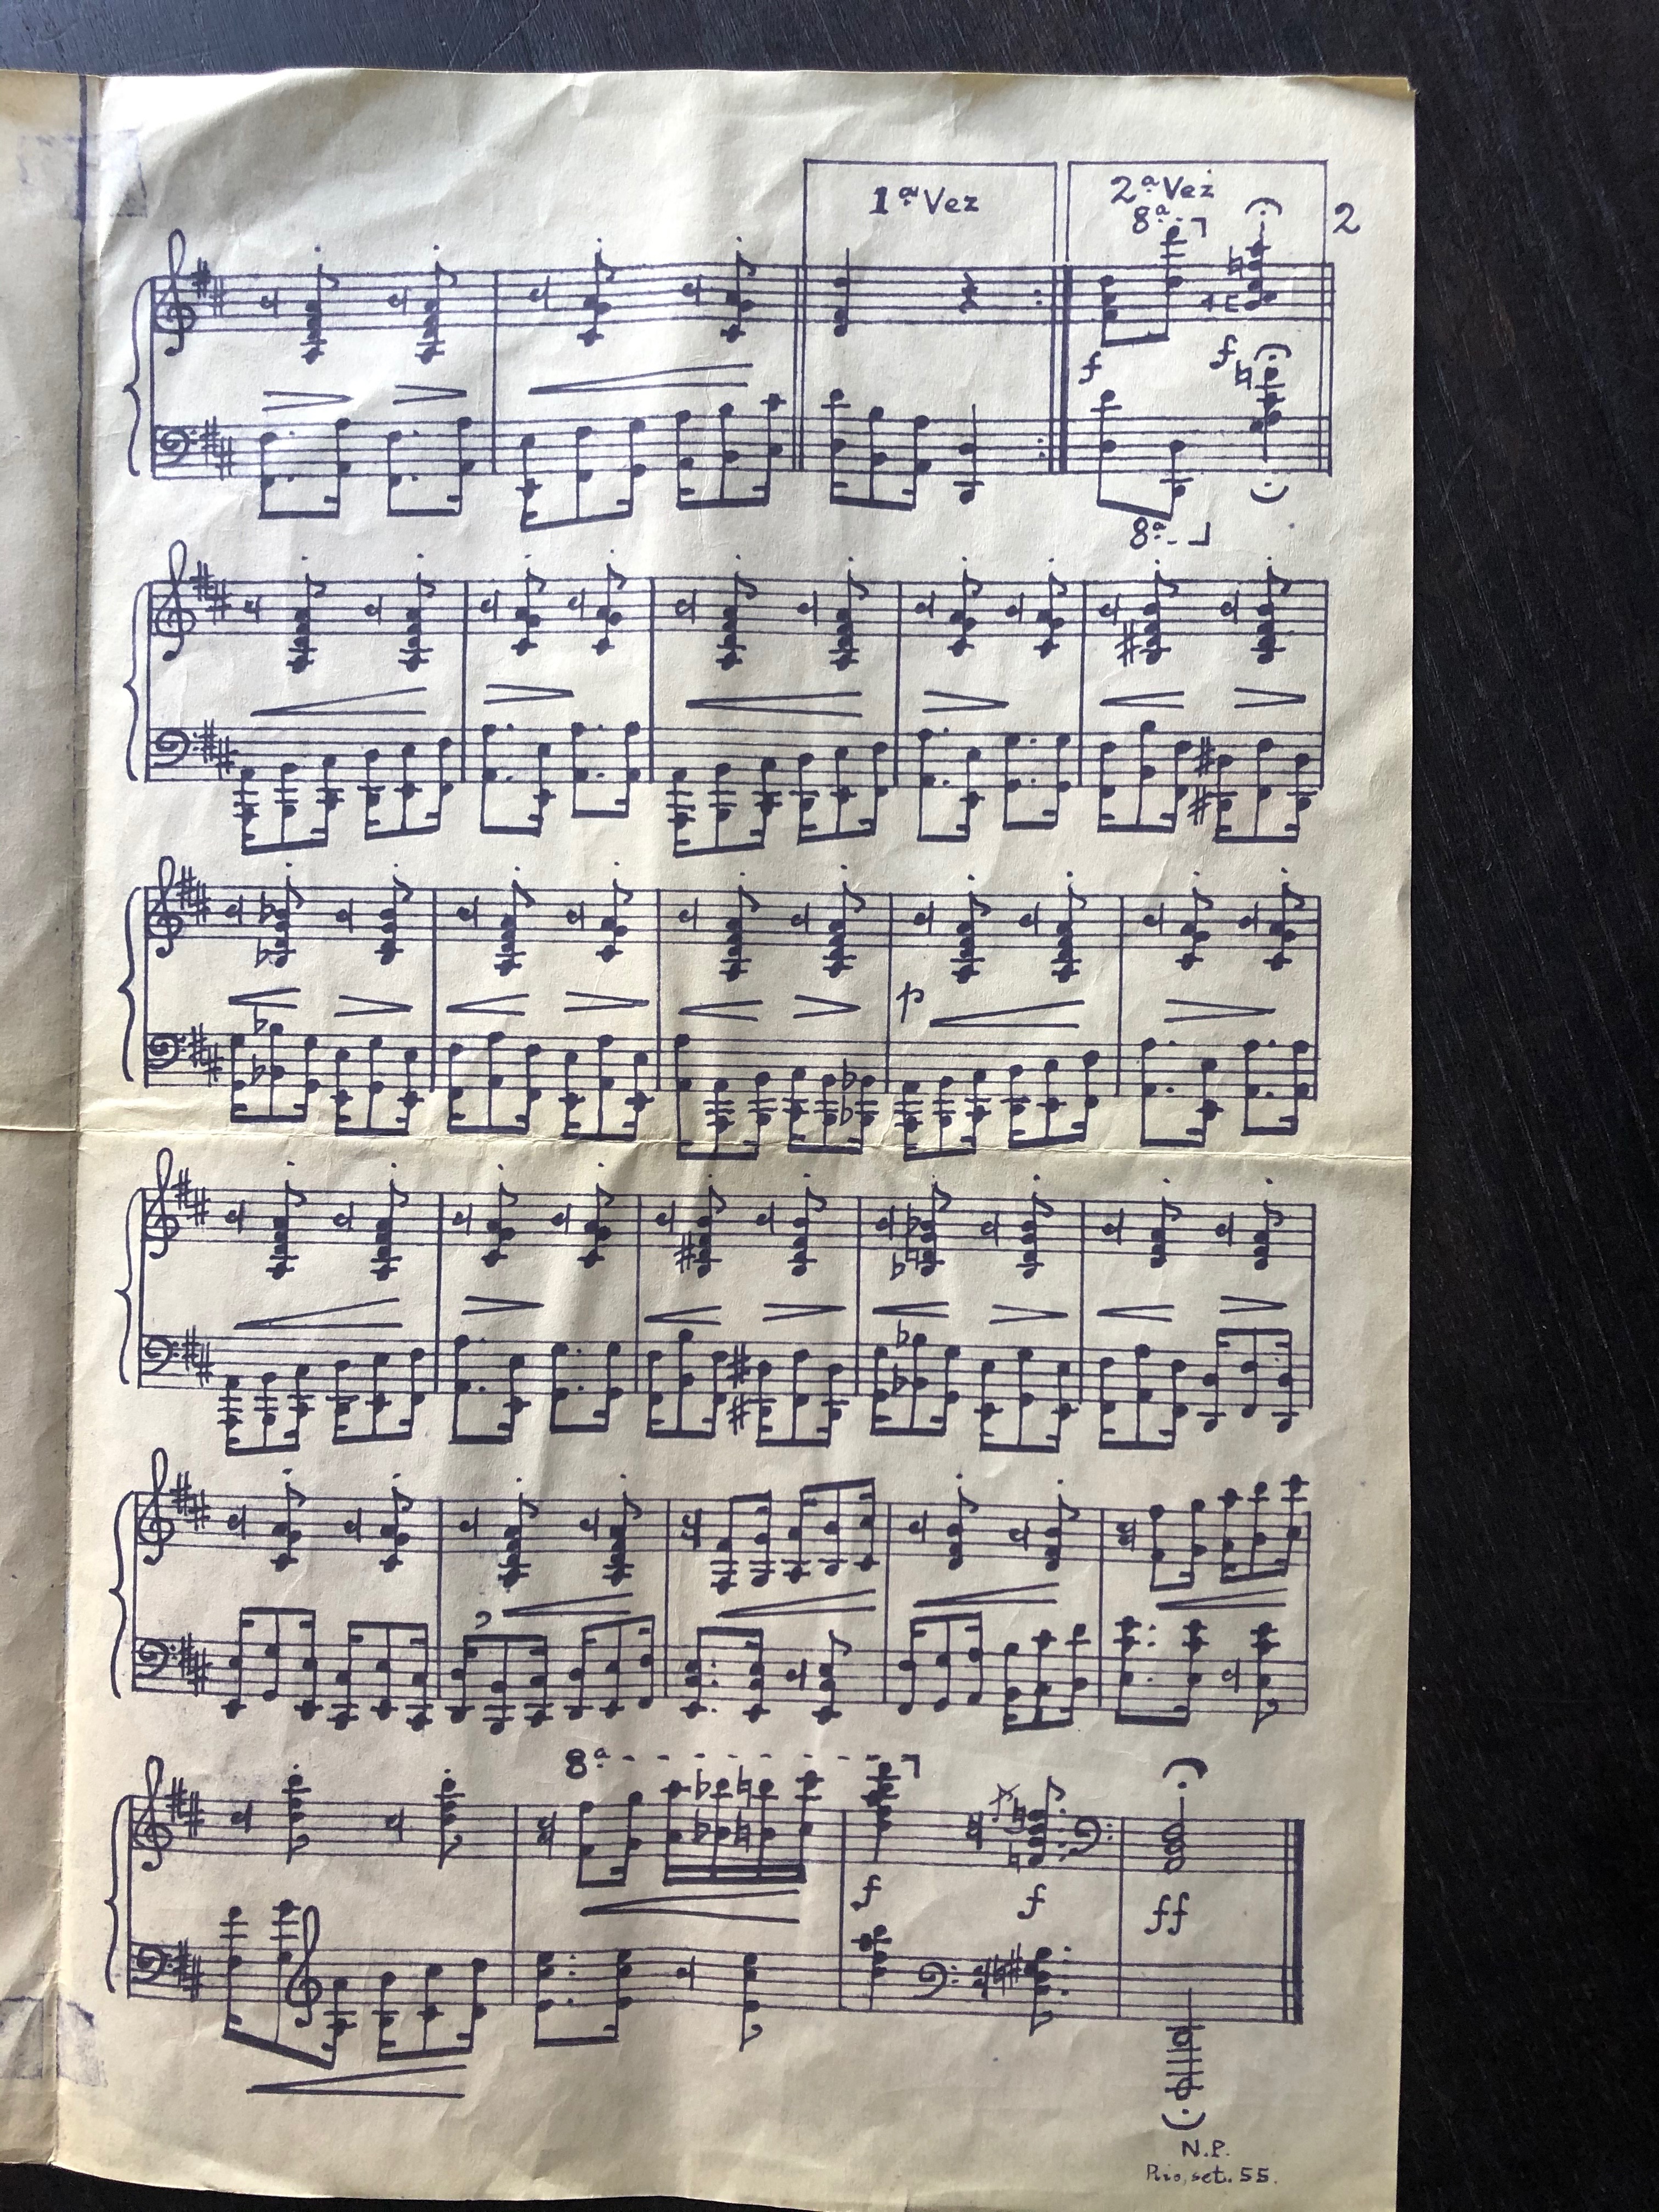 1ª Vez
2ª Vez
2
8ª
f
f
8ª
p
8ª
f
f
ff
N.P.
Rio, set. 55.